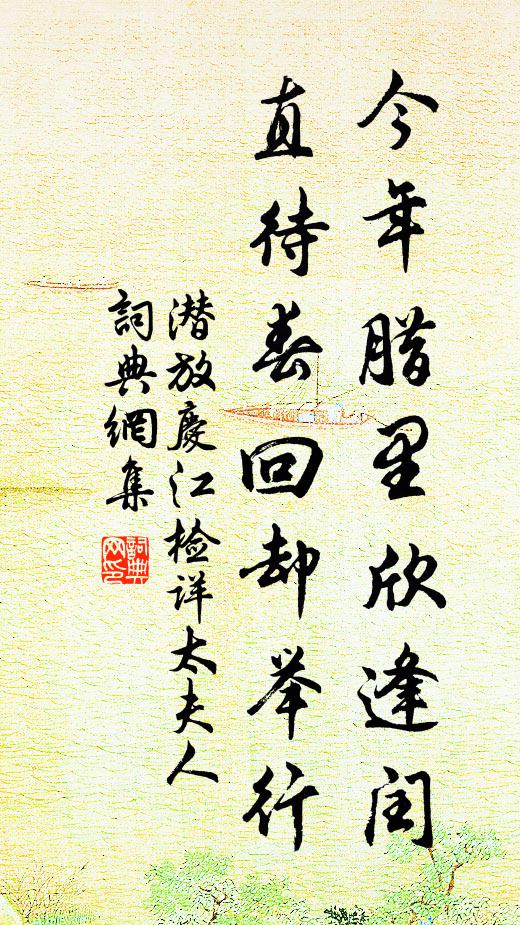 今年腊里欣逢闰
直待春回却举行
潜放慶江检详太夫人
詞典網集
詞典网印